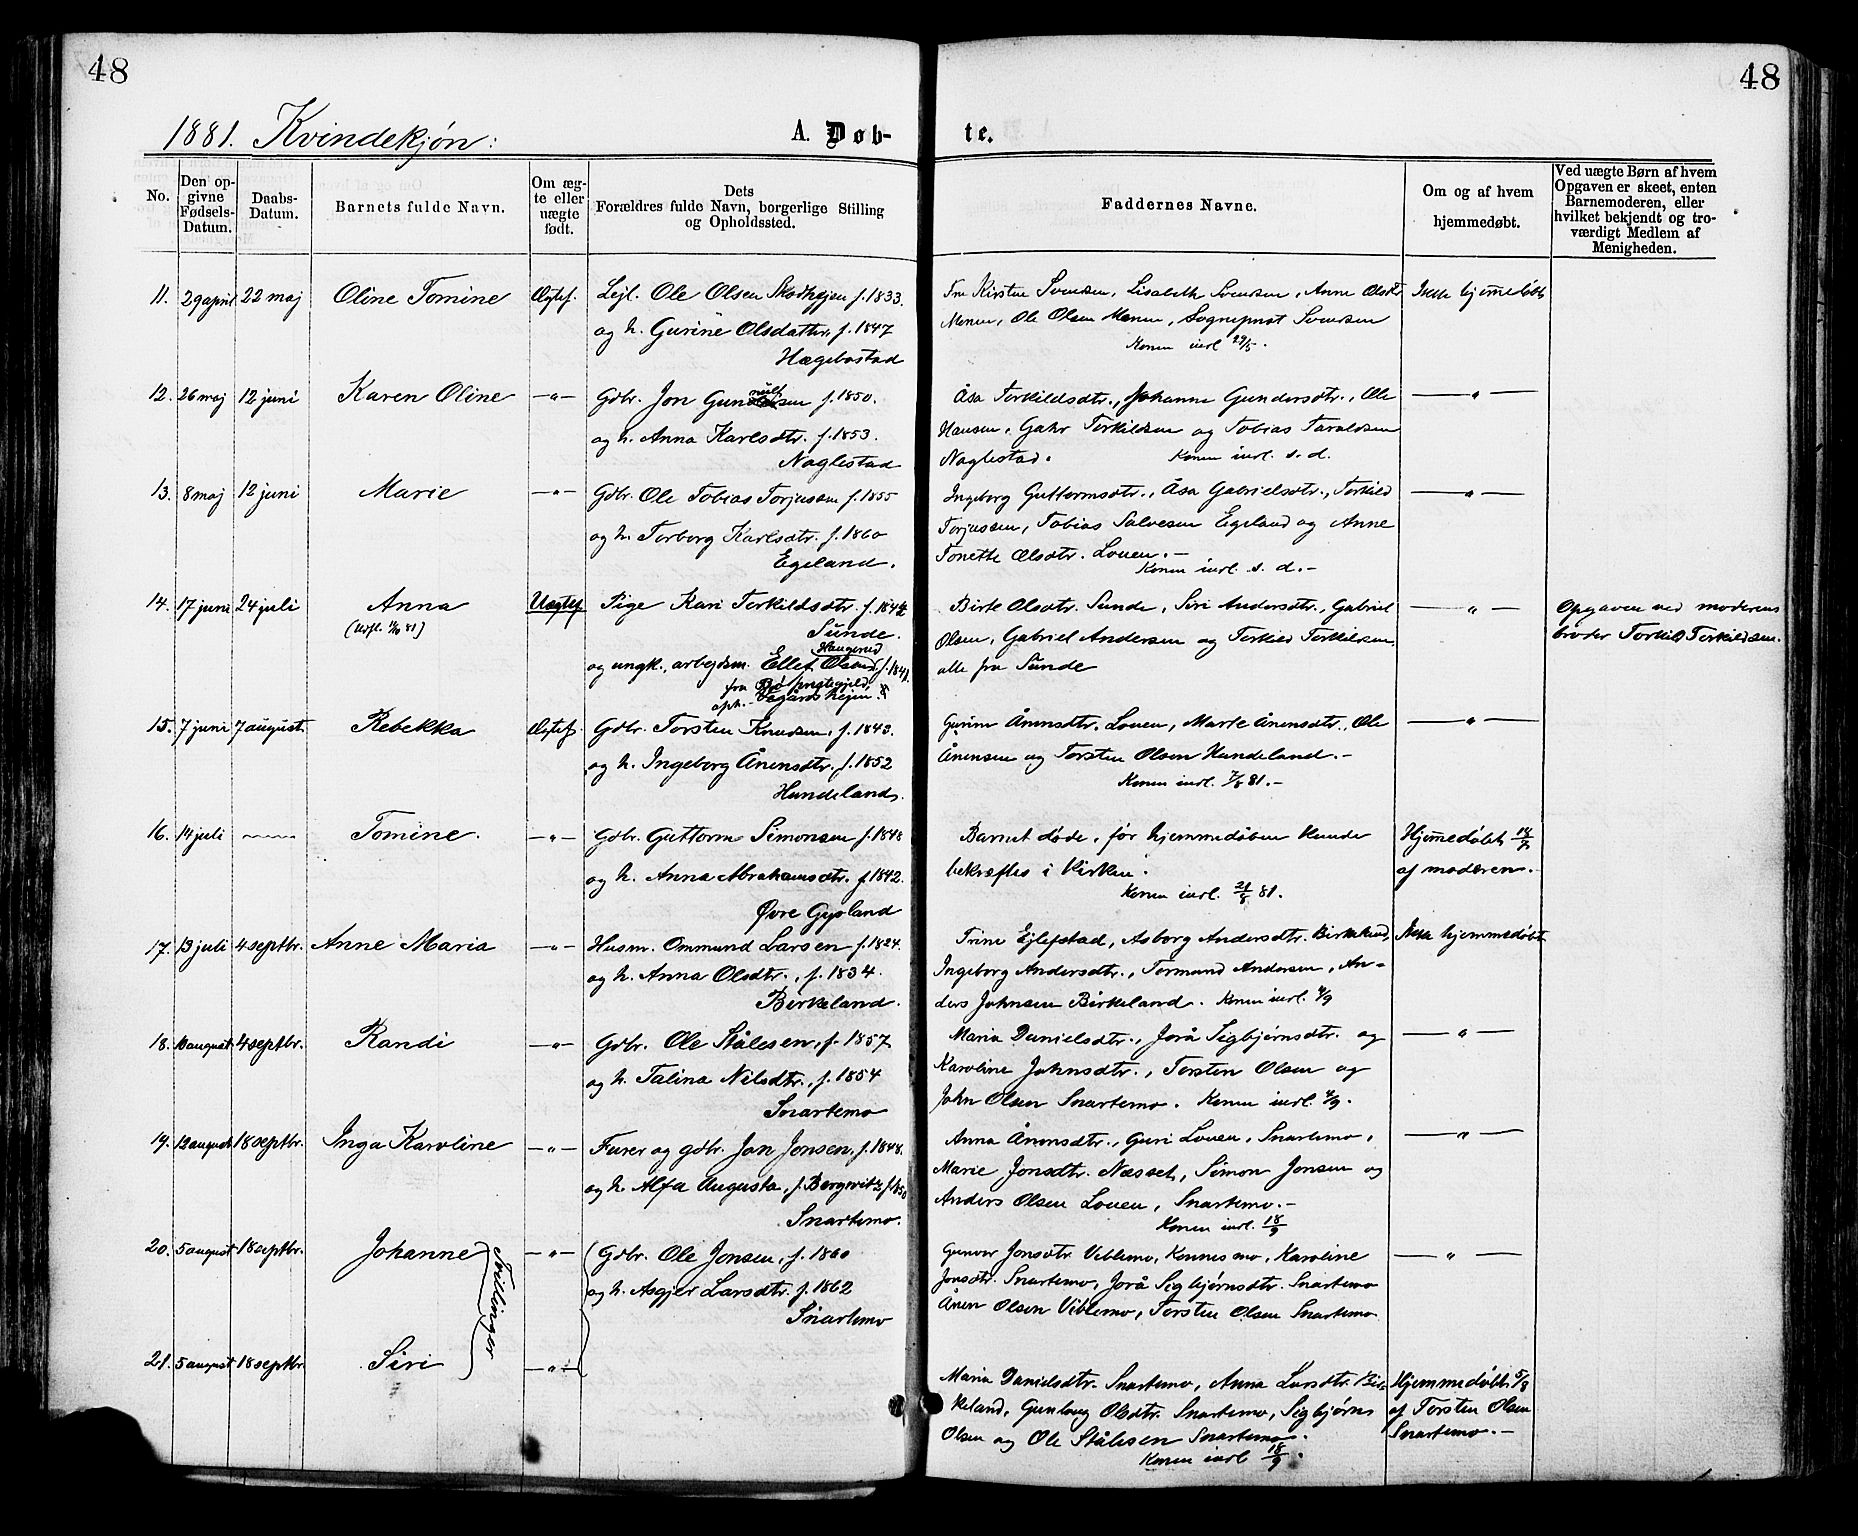 48
48
1881. Kvindekjøn:
A. Døb-
te.
No.
Den op-
givne
Fødsels-
Datum.
Daabs-
Datum.
Barnets fulde Navn.
Om æg-
te eller
uægte
født.
Dets
Forældres fulde Navn, borgerlige Stilling
og Opholdssted.
Faddernes Navne.
Om og af hvem
hjemmedøbt.
Ved uægte Børn af hvem
Opgaven er skeet, enten
Barnemoderen, eller
hvilket bekjendt og tro-
værdigt Medlem af
Menigheden.
11. 29 april 22 maj Oline Tomine Ægtef. Lejl. Ole Olsen Skodhejen f. 1833.
og h. Gurine Olsdatter, f. 1847
Hægebostad
Fru Kirsten Svendsen, Lisabeth Svendsen, Anne Olsdtr
Monen, Ole Olsen Monen, Sognepræst Svendsen
Konen indl. 29/5.
Ikke hjemmedøbt
12. 26 maj 12 juni Karen Oline —"— Gdbr. Jon Gunnulfsen f. 1850.
og h. Anna Karlsdtr. f. 1853.
Naglestad
Åsa Torkildsdtr., Johanne Gundersdtr., Ole
Hansen, Gahr Torkildsen og Tobias Taraldsen
Naglestad. Konen indl. s. d.
—"—
13. 8 maj 12 juni Marie —"— Gdbr. Ole Tobias Torjussen f. 1855
og h. Torborg Karlsdtr. f. 1860
Egeland.
Ingeborg Guttormsdtr., Åsa Gabrielsdtr., Torkild
Torjussen, Tobias Salvesen Egeland og Anne
Tonette Olsdtr. Louen.—
Konen indl. s. d.—
—"—
14. 17 juni 24 juli Anna Uægtef Pige Kari Torkildsdtr. f. 1844
(Udfl. 81)
Sunde.
Haugerud
og ungk. arbejdsm. Ellef Olsen f. 1841.
fra Bø præstegjeld,
oph.
Birte Olsdtr. Sunde, Siri Andersdtr., Gabriel
Olsen, Gabriel Andersen og Torkild Torkildsen,
alle fra Sunde
—"—
Opgaven ved moderens
broder Torkild Torkildsen.
15. 7 juni 7 august Rebekka Ægtef. Gdbr. Torsten Knudsen, f. 1843.
og h. Ingeborg Ånensdtr. f. 1852
Hundeland.
Gurine Ånensdtr. Louen, Marte Ånensdtr., Ole
Ånensen og Torsten Olsen Hundeland.—
Konen indl. 7/8 81.—
—"—
16. 14 juli Tomine. —"— Gdbr. Guttorm Simonsen f. 1848
og h. Anna Abrahamsdtr. f 1842.
Øvre Gysland
Barnet døde, før hjemmedøben kunde
bekræftes i kirken.
Konen indl. 21/8 81.
Hjemmedøbt 18/7
af moderen.
17. 13 juli 4 septbr. Anne Maria —"— Husm. Ommund Larsen f. 1824.
og h. Anna Olsdtr., f. 1834.
Birkeland.
Trine Ejlefstad, Asborg Andersdtr. Birkeland,
Ingeborg Andersdtr., Tormund Andersen, An-
ders Johnsen Birkeland. Konen indl. 4/9
Ikke hjemmedøbt
18. august 4 septbr. Randi —"— Gdbr. Ole Stålesen, f. 1857.
og h. Talina Nilsdtr., f. 1854
Snartemo
Maria Danielsdtr., Jorå Sigbjørnsdtr. og
Karoline Johnsdtr., Torsten Olsen og
John Olsen Snartemo. Konen indl. 4/9.
—"—
19. 12 august 18 septbr. Inga Karoline —"— Furer og gdbr. Jon Jonsen, f. 1848.
og h. Alfa Augusta, f. Bergwitz f. 1850
Snartemo.
Anna Ånensdtr., Guri Louen, Snartemo,
Marie Jonsdtr. Næsset, Simon Jonsen og
Anders Olsen Louen, Snartemo.—
Konen indl. 18/9
—"—
20. 5 august 18 septbr. Johanne —"— Gdbr. Ole Jonsen, f. 1860
og h. Asgjer Larsdtr. f. 1862
Snartemo
Tvillinger
Gunvor Jonsdtr. Viblemo, Konnesmo, Karoline
Jonsdtr. Snartemo, Jorå Sigbjørnsdtr. Snartemo
Ånen Olsen Viblemo, Torsten Olsen Snartemo
—"—
21. 5 august 18 septbr. Siri —"—
Maria Danielsdtr. Snartemo, Anna Larsdtr. Bir-
keland, Gunlaug Olsdtr. Snartemo, Sigbjørn
Olsen og Ole Stålesen Snartemo.
Konen indl 18/9.
Hjemmedøbt 5/8
af Torsten Olsen
Snartemo.—